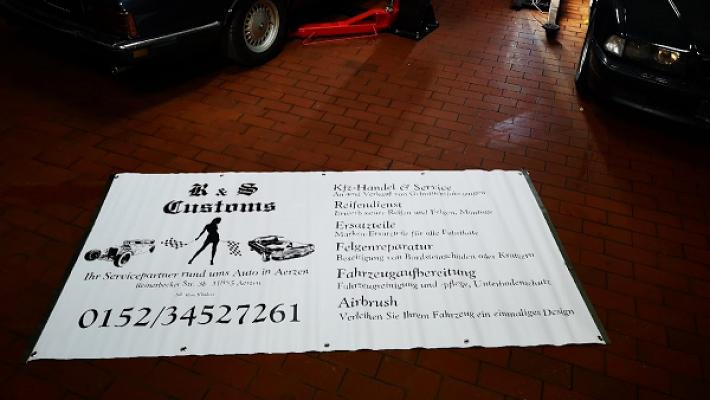 R & S
Customs
Ihr Servicepartner rund ums Auto in Aerzen
Reinerbecker Str. 36 31855 Aerzen
0152/34527261
Kfz-Handel & Service
An- und Verkauf von Gebrauchtfahrzeugen
Reifendienst
Erwerb neuer Reifen und Felgen, Montage
Ersatzteile
Marken-Ersatzteile für alle Fabrikate
Felgenreparatur
Beseitigung von Bordsteinschäden oder Kratzern
Fahrzeugaufbereitung
Fahrzeugreinigung und -pflege, Unterbodenschutz
Airbrush
Verleihen Sie Ihrem Fahrzeug ein einmaliges Design